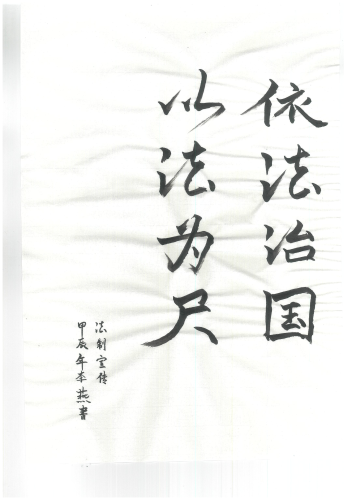 依法治国
以法为尺
法制宣传
甲辰年李燕書